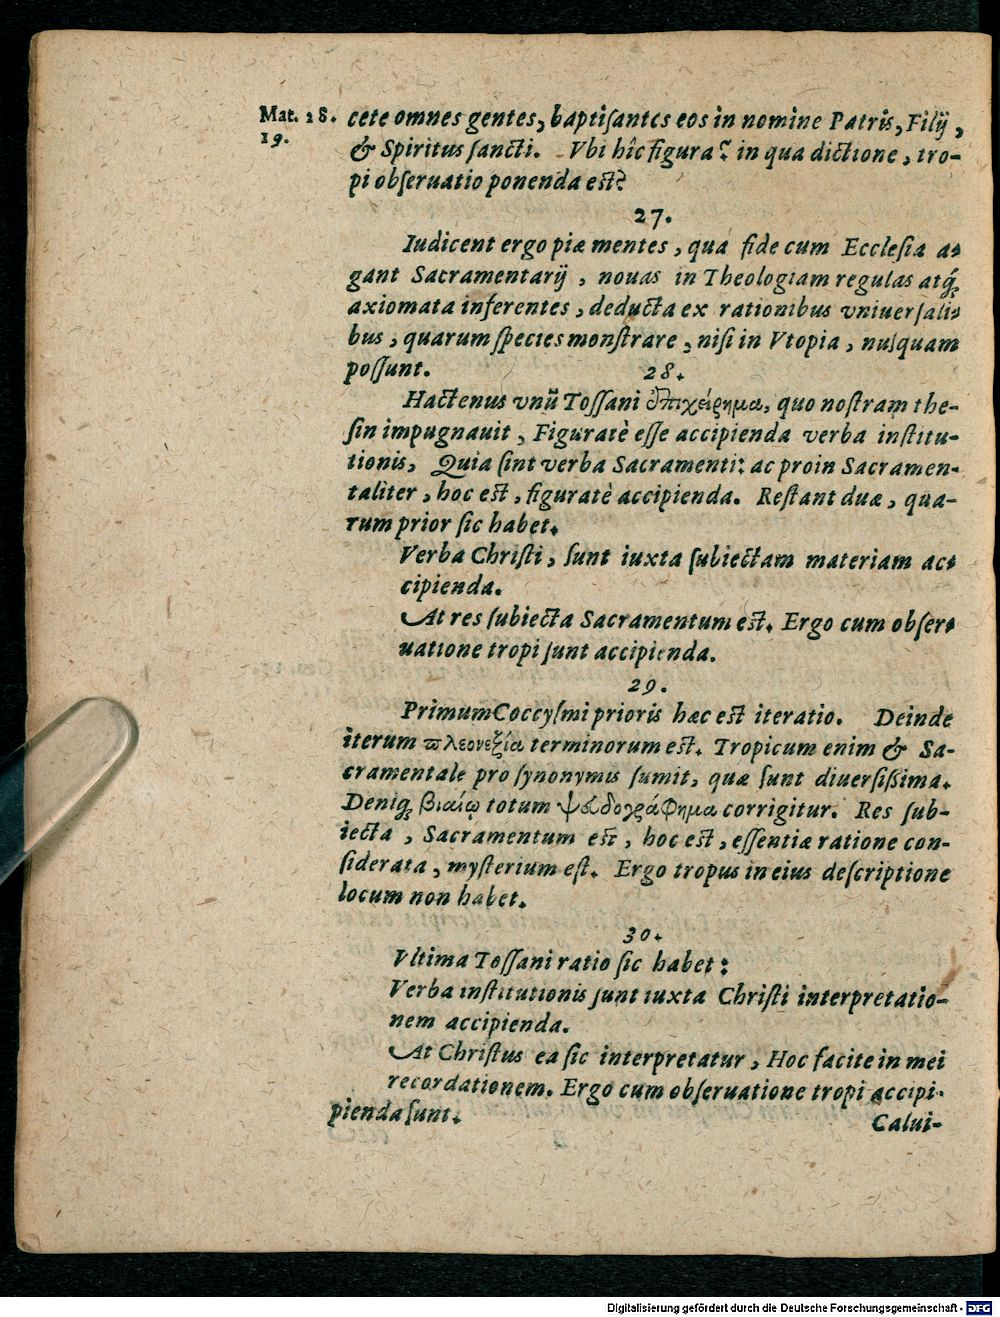 Mat. 28. cete omnes gentes, baptiſantes eos in nomine Patris, Filij,
19. & Spiritus ſancti. Vbi hîc figura? in qua dictione, tro-
pi obſeruatio ponenda eſt?
27.
Iudicent ergo piæ mentes, qua fide cum Ecclesia a-
gant Sacramentarij, nouas in Theologiam regulas atq́;
axiomata inferentes, deducta ex rationibus vniuerſali-
bus, quarum ſpecies monſtrare, niſi in Vtopia, nuſquam
poſſunt.
28.
Hactenus vnũ Toſſani ἐπιχείρημα, quo noſtram the-
ſin impugnauit, Figuratè eſſe accipienda verba inſtitu-
tionis, Quia ſint verba Sacramenti: ac proin Sacramen-
taliter, hoc eſt, figuratè accipienda. Reſtant duæ, qua-
rum prior ſic habet.
Verba Chriſti, ſunt iuxta ſubiectam materiam ac-
cipienda.
At res ſubiecta Sacramentum eſt. Ergo cum obſer-
uatione tropi ſunt accipienda.
29.
Primum Coccyſmi prioris hæc eſt iteratio. Deinde
iterum πλεονεξία terminorum eſt. Tropicum enim & Sa-
cramentale pro ſynonymis ſumit, quæ ſunt diuerſißima.
Deniq; βιαίῳ totum ψευδογράφημα corrigitur. Res ſub-
iecta, Sacramentum eſt, hoc eſt, eſſentiæ ratione con-
ſiderata, myſterium eſt. Ergo tropus in eius deſcriptione
locum non habet.
30.
Vltima Toſſani ratio ſic habet:
Verba inſtitutionis ſunt iuxta Chriſti interpretatio-
nem accipienda.
At Chriſtus ea ſic interpretatur, Hoc facite in mei
recordationem. Ergo cum obſeruatione tropi accipi-
pienda ſunt.
Calui-
Digitalisierung gefördert durch die Deutsche Forschungsgemeinschaft - DFG